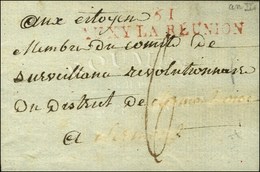 51
NY LA RÉUNION
aux citoyen
Membre du comité de
surveillance revolutionnaire
Du District de
a